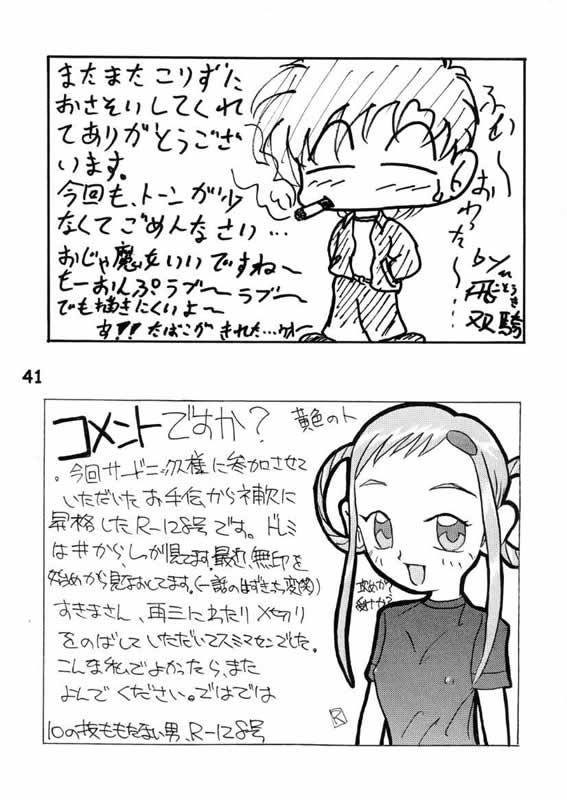 またまた こりずに
おさそいしてくれ
てありがとうござ
います。
今回も、トーンが少
なくてごめんなさい…
おじゃ魔女いいですね〜
もーおんぷラブ〜ラブ〜
でも描きにくいよ〜
あ!! たばこが きれた…
ふむ〜
おわった〜…
by
飛双騎
41
コメントですか?
黄色の人
。今回サードニックス様に参加させて
いただいたお手伝から補欠に
昇格したR-128号です。ドレミ
は#から、しか見てます。最近、無印を
始めから見なおしてます。
すきまさん、再三にわたり〆切り
をのばしていただいてスミマセンでした。
こんな私でよかったら、また
よんでください。ではでは
攻めか?
受けか?
10の枝ももたない男、R-128号
R